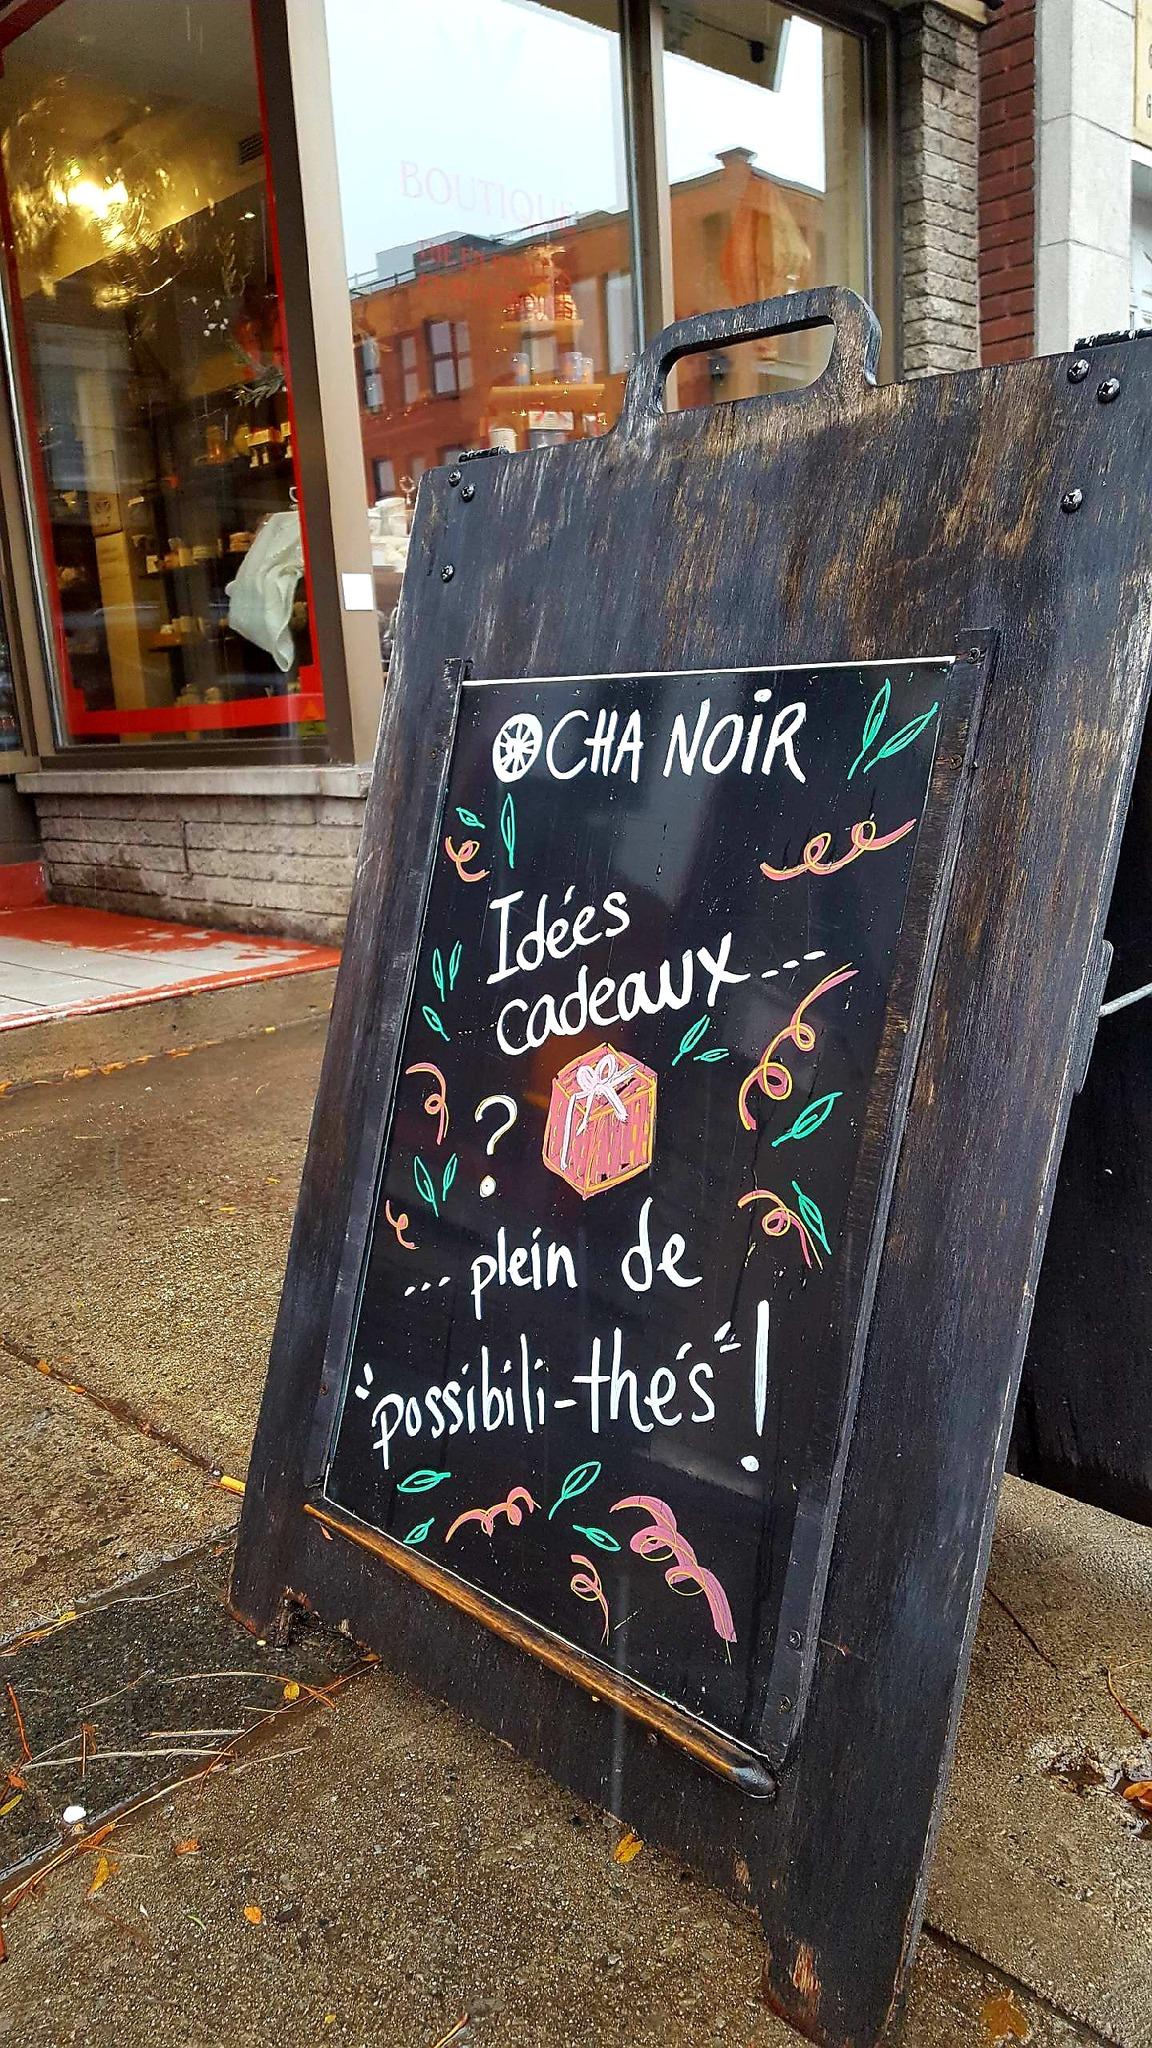 CHA NOIR
Idées
cadeaux...
?
...plein de
"possibili-thés"!
BOUTIQUE